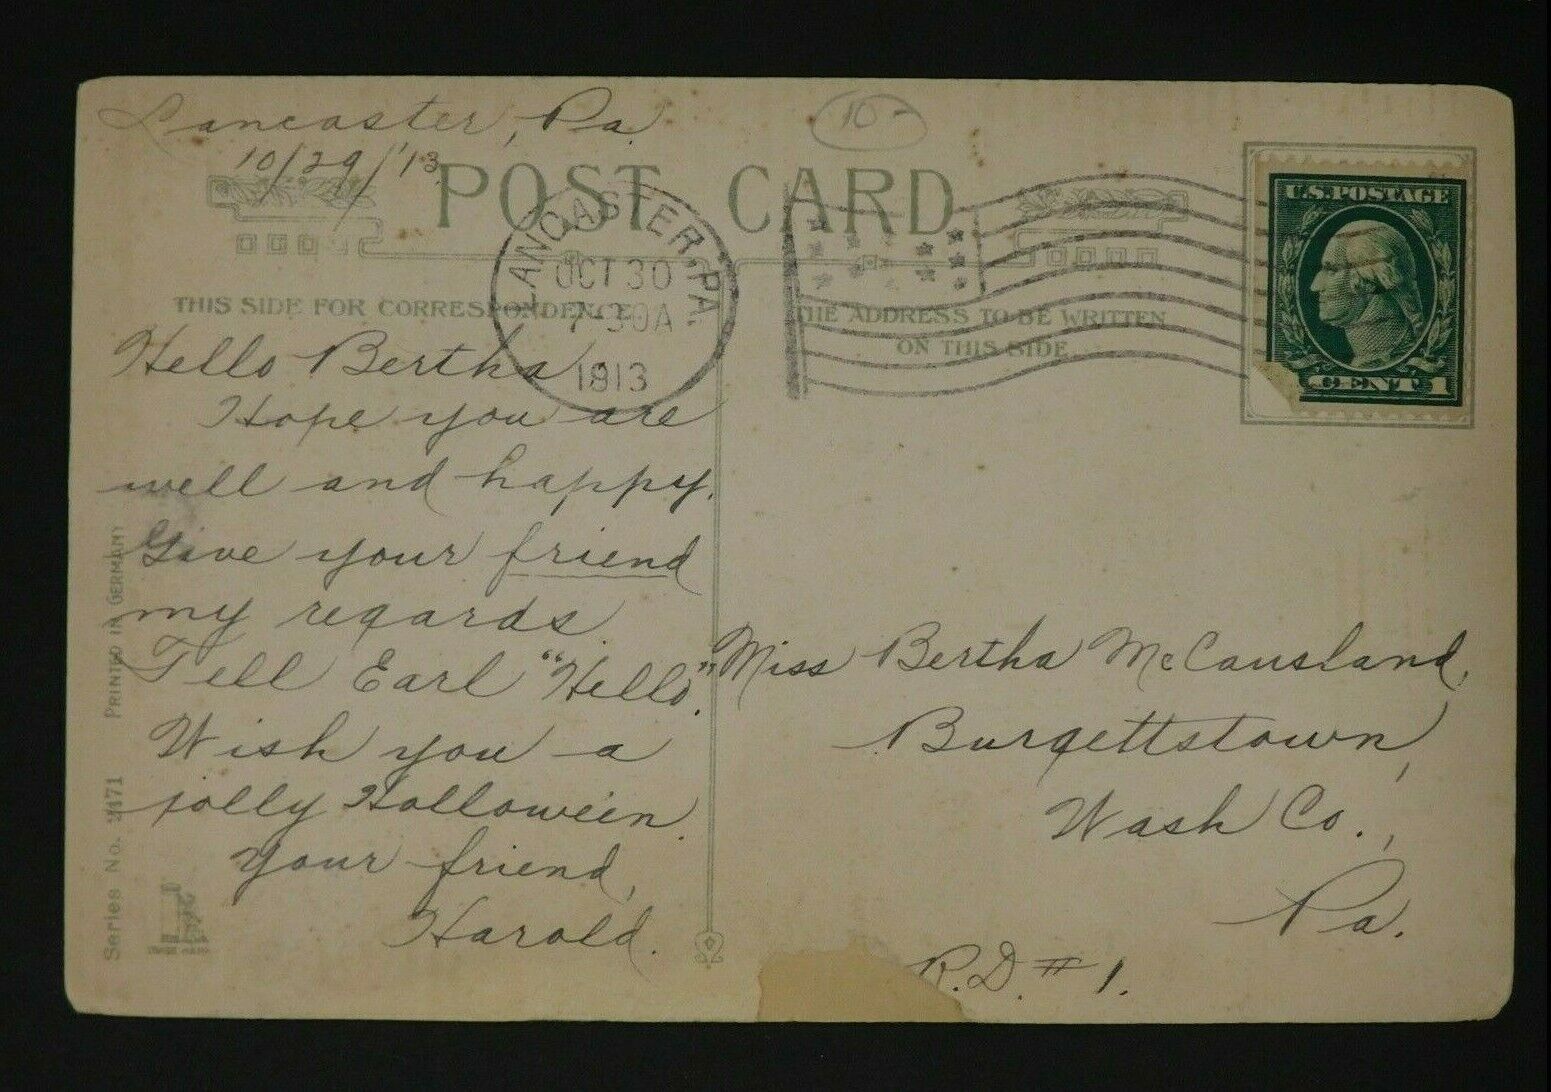 Lancaster, Pa.
10/29/'13
10-
POST CARD
LANCASTER, PA.
OCT 30
7-30A
1913
U.S. POSTAGE
CENT 1
THIS SIDE FOR CORRESPONDENCE
THE ADDRESS TO BE WRITTEN
ON THIS SIDE
Hello Bertha,
Hope you are
well and happy.
Give your friend
my regards.
Tell Earl "Hello."
Wish you a
jolly Holloween.
Your friend,
Harold.
Miss Bertha McCausland,
Burgettstown,
Wash Co.,
Pa.
R.D. #1.
PRINTED IN GERMANY
Series No.